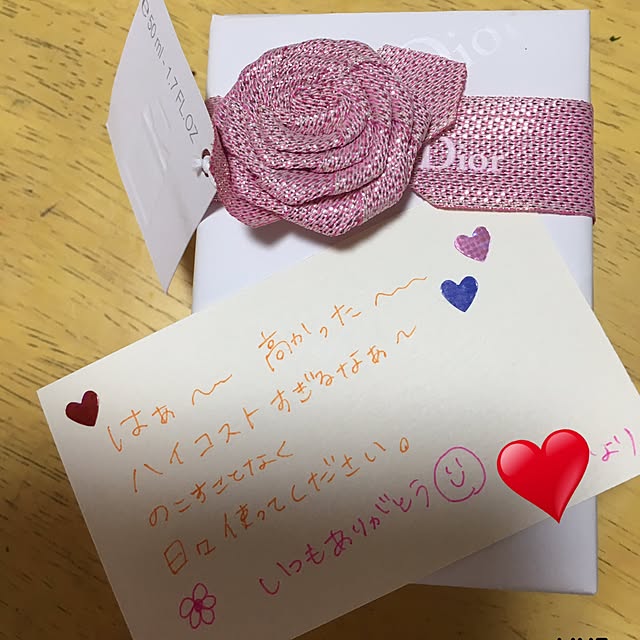 ℮ 50 ml - 1.7 FL.OZ
Dior
Dior
はぁ〜 高かった〜
ハイコストすぎるなぁ〜
のこすことなく
日々使ってください。
いつもありがとう
より